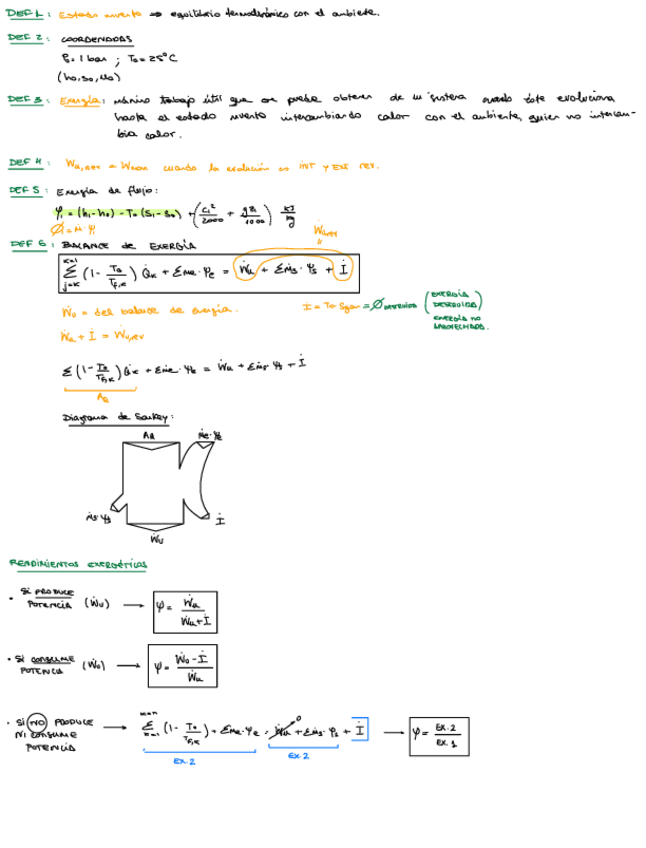 DEF 1: Estado muerto ⇒ equilibrio termodinámico con el ambiente.
DEF 2: COORDENADAS
P₀=1 bar ; T₀=25°C
(h₀,s₀,u₀)
DEF 3: Exergía: máximo trabajo útil que se puede obtener de un sistema cuando éste evoluciona
hasta el estado muerto intercambiando calor con el ambiente, quien no intercam-
bia calor.
DEF 4: Wu,rev = Wmax cuando la evolución es INT y EXT rev.
DEF 5: Exergía de flujo:
Ψ₁ = (h₁-h₀) - T₀(s₁-s₀) + (c₁²/2000 + gz₁/1000) kJ/kg
Ø = ṁ·Ψ
Ẇu,rev
DEF 6: BALANCE DE EXERGÍA
Σ (1 - T₀/Tf,k) Q̇k + Σṁe·Ψe = Ẇu + Σṁs·Ψs + İ
Ẇu = del balance de energía.
İ = T₀·Sgen = Ø DESTRUIDA (EXERGÍA DESTRUIDA)
ENERGÍA NO
APROVECHADA.
Ẇu + İ = Ẇu,rev
Σ (1 - T₀/Tf,k) Q̇k + Σṁe·Ψe = Ẇu + Σṁs·Ψs + İ
AQ
Diagrama de Sankey:
AQ ṁe·Ψe
ṁs·Ψs İ
Ẇu
RENDIMIENTOS EXERGÉTICOS
· SI PRODUCE
POTENCIA (Ẇu) → Ψ = Ẇu/(Ẇu+İ)
· SI CONSUME
POTENCIA (Ẇu) → Ψ = (Ẇu-İ)/Ẇu
· SI NO PRODUCE
NI CONSUME
POTENCIA → Σ (1 - T₀/Tf,k) + Σṁe·Ψe = Ẇu⁰ + Σṁs·Ψs + İ → Ψ = EX.2/EX.1
EX.2 EX.2